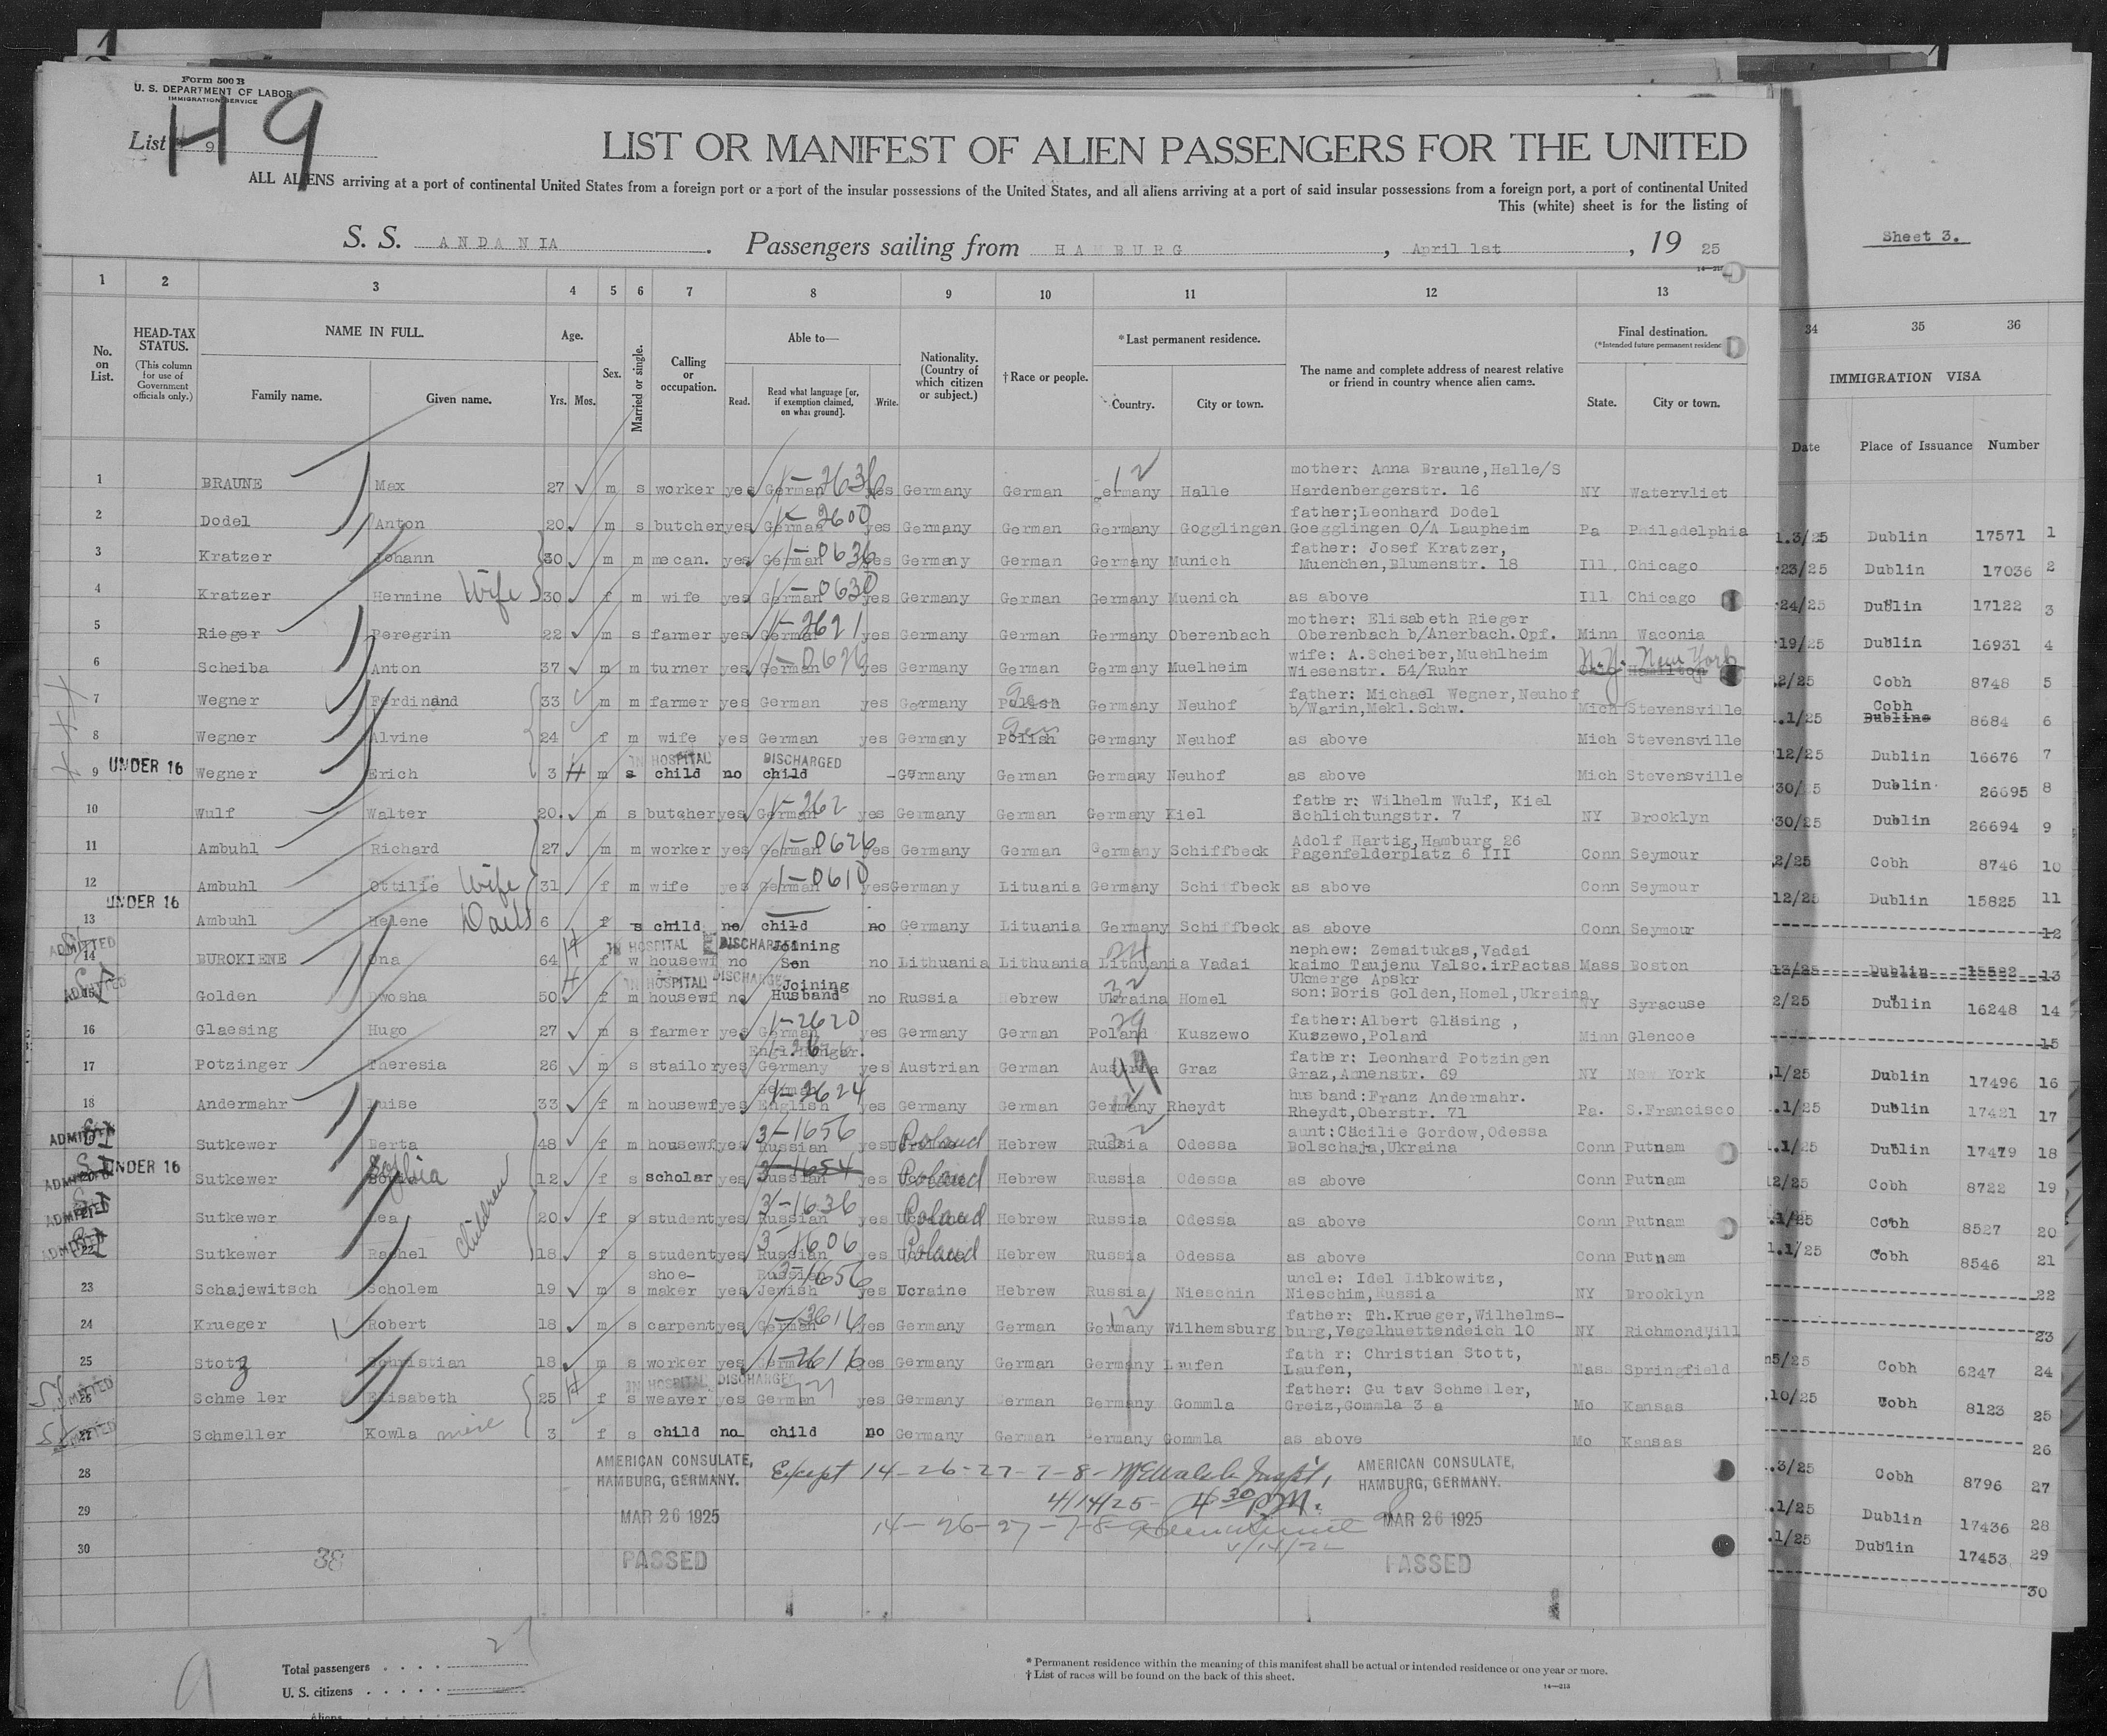 Form 500 B
U. S. DEPARTMENT OF LABOR
IMMIGRATION SERVICE
List 9
H 9
LIST OR MANIFEST OF ALIEN PASSENGERS FOR THE UNITED
ALL ALIENS arriving at a port of continental United States from a foreign port or a port of the insular possessions of the United States, and all aliens arriving at a port of said insular possessions from a foreign port, a port of continental United
This (white) sheet is for the listing of
S. S. ANDANIA. Passengers sailing from HAMBURG, April 1st, 19 25
Sheet 3.
1 2 3 4 5 6 7 8 9 10 11 12 13
34 35 36
No. on List.
HEAD-TAX STATUS.
(This column for use of Government officials only.)
NAME IN FULL.
Family name. Given name.
Age.
Yrs. Mos.
Sex.
Married or single.
Calling or occupation.
Able to—
Read. Read what language [or, if exemption claimed, on what ground]. Write.
Nationality. (Country of which citizen or subject.)
† Race or people.
* Last permanent residence.
Country. City or town.
The name and complete address of nearest relative or friend in country whence alien came.
Final destination.
(*Intended future permanent residence
State. City or town.
IMMIGRATION VISA
Date Place of Issuance Number
1 BRAUNE Max 27 m s worker yes German 1-2636 yes Germany German Germany 12 Halle mother: Anna Braune, Halle/S Hardenbergerstr. 16 NY Watervliet
2 Dodel Anton 20 m s butcher yes German 1-2600 yes Germany German Germany Gogglingen father; Leonhard Dodel Goegglingen O/A Laupheim Pa Philadelphia
3 Kratzer Johann 30 m m mecan. yes German 1-0636 yes Germany German Germany Munich father: Josef Kratzer, Muenchen, Blumenstr. 18 Ill Chicago
4 Kratzer Hermine Wife 30 f m wife yes German 1-0630 yes Germany German Germany Muenich as above Ill Chicago
5 Rieger Peregrin 22 m s farmer yes German 1-2621 yes Germany German Germany Oberenbach mother: Elisabeth Rieger Oberenbach b/Anerbach.Opf. Minn Waconia
6 Scheiba Anton 37 m m turner yes German 1-0626 yes Germany German Germany Muelheim wife: A.Scheiber, Muehlheim Wiesenstr. 54/Ruhr N.Y. New York Hamilton
7 Wegner Ferdinand 33 m m farmer yes German yes Germany Polish Ger Germany Neuhof father: Michael Wegner, Neuhof b/Warin, Mekl. Schw. Mich Stevensville
8 Wegner Alvine 24 f m wife yes German yes Germany Polish Ger Germany Neuhof as above Mich Stevensville
IN HOSPITAL DISCHARGED
9 UNDER 16 Wegner Erich 3 m s child no child - Germany German Germany Neuhof as above Mich Stevensville
10 Wulf Walter 20 m s butcher yes German 1-262 yes Germany German Germany Kiel father: Wilhelm Wulf, Kiel Schlichtungstr. 7 NY Brooklyn
11 Ambuhl Richard 27 m m worker yes German 1-0626 yes Germany German Germany Schiffbeck Adolf Hartig, Hamburg 26 Pagenfelderplatz 6 III Conn Seymour
12 Ambuhl Ottilie Wife 31 f m wife yes German 1-0610 yes Germany Lituania Germany Schiffbeck as above Conn Seymour
UNDER 16
13 Ambuhl Helene Daug 6 f s child no child no Germany Lituania Germany Schiffbeck as above Conn Seymour
ADMITTED IN HOSPITAL DISCHARGED
14 BUROKIENE Ona 64 f w housewf no Joining Son no Lithuania Lithuania Lithuania Vadai nephew: Zemaitukas, Vadai kaimo Taujenu Valsc.irPactas Ukmerge Apskr Mass Boston
ADMITTED IN HOSPITAL DISCHARGED
15 Golden Dwosha 50 f m housewf no Joining Husband no Russia Hebrew Ukraina Homel son: Boris Golden, Homel, Ukraina NY Syracuse
16 Glaesing Hugo 27 m s farmer yes German 1-2620 yes Germany German Poland Kuszewo father: Albert Gläsing, Kuszewo, Poland Minn Glencoe
17 Potzinger Theresia 26 m s stailor yes Engl. Hungar. Germany yes Austrian German Austria Graz father: Leonhard Potzingen Graz, Annenstr. 69 NY New York
18 Andermahr Luise 33 f m housewf yes German English 1-2624 yes Germany German Germany Rheydt husband: Franz Andermahr. Rheydt, Oberstr. 71 Pa. S.Francisco
ADMITTED SI Sutkewer Berta 48 f m housewf yes Russian 3-1656 yes Poland Hebrew Russia Odessa aunt: Cäcilie Gordow, Odessa Bolschaja, Ukraina Conn Putnam
ADMITTED SI UNDER 16 Sutkewer Sophia 12 f s scholar yes Russian 3-1654 yes Poland Hebrew Russia Odessa as above Conn Putnam
ADMITTED SI Sutkewer Lea children 20 f s student yes Russian 3-1636 yes Poland Hebrew Russia Odessa as above Conn Putnam
ADMITTED SI 22 Sutkewer Rachel 18 f s student yes Russian 3-1606 yes Poland Hebrew Russia Odessa as above Conn Putnam
23 Schajewitsch Scholem 19 m s shoe-maker yes Russian Jewish 3-1656 yes Ucraine Hebrew Russia Nieschin uncle: Idel Libkowitz, Nieschim, Russia NY Brooklyn
24 Krueger Robert 18 m s carpent yes German yes Germany German Germany 12 Wilhemsburg father: Th.Krueger, Wilhelms-burg, Vegelhuettendeich 10 NY Richmond Hill
25 Stotz Christian 18 m s worker yes German 1-2616 yes Germany German Germany Laufen father: Christian Stott, Laufen, Mass Springfield
ADMITTED IN HOSPITAL DISCHARGED
26 Schmeller Elisabeth 25 f s weaver yes German yes Germany German Germany Gommla father: Gustav Schmeller, Greiz, Gommla 3 a Mo Kansas
ADMITTED 27 Schmeller Kowla 3 f s child no child no Germany German Germany Gommla as above Mo Kansas
28
29
30
AMERICAN CONSULATE, HAMBURG, GERMANY.
MAR 26 1925
PASSED
Except 14-26-27-7-8-
4/14/25 - 4 30 P.M.
14-26-27-7-8-
AMERICAN CONSULATE, HAMBURG, GERMANY.
MAR 26 1925
PASSED
38
1.3/25 Dublin 17571 1
23/25 Dublin 17036 2
24/25 Dublin 17122 3
19/25 Dublin 16931 4
2/25 Cobh 8748 5
.1/25 Cobh Dubline 8684 6
12/25 Dublin 16676 7
30/25 Dublin 26695 8
30/25 Dublin 26694 9
2/25 Cobh 8746 10
12/25 Dublin 15825 11
12
13/25 Dublin 15582 13
2/25 Dublin 16248 14
15
.1/25 Dublin 17496 16
.1/25 Dublin 17421 17
1.1/25 Dublin 17479 18
2/25 Cobh 8722 19
.1/25 Cobh 8527 20
1.1/25 Cobh 8546 21
22
23
5/25 Cobh 6247 24
.10/25 Cobh 8123 25
26
.3/25 Cobh 8796 27
.1/25 Dublin 17436 28
.1/25 Dublin 17453 29
30
9
Total passengers . . . . 27
U. S. citizens . . . . .
Aliens
* Permanent residence within the meaning of this manifest shall be actual or intended residence of one year or more.
† List of races will be found on the back of this sheet.
14—213